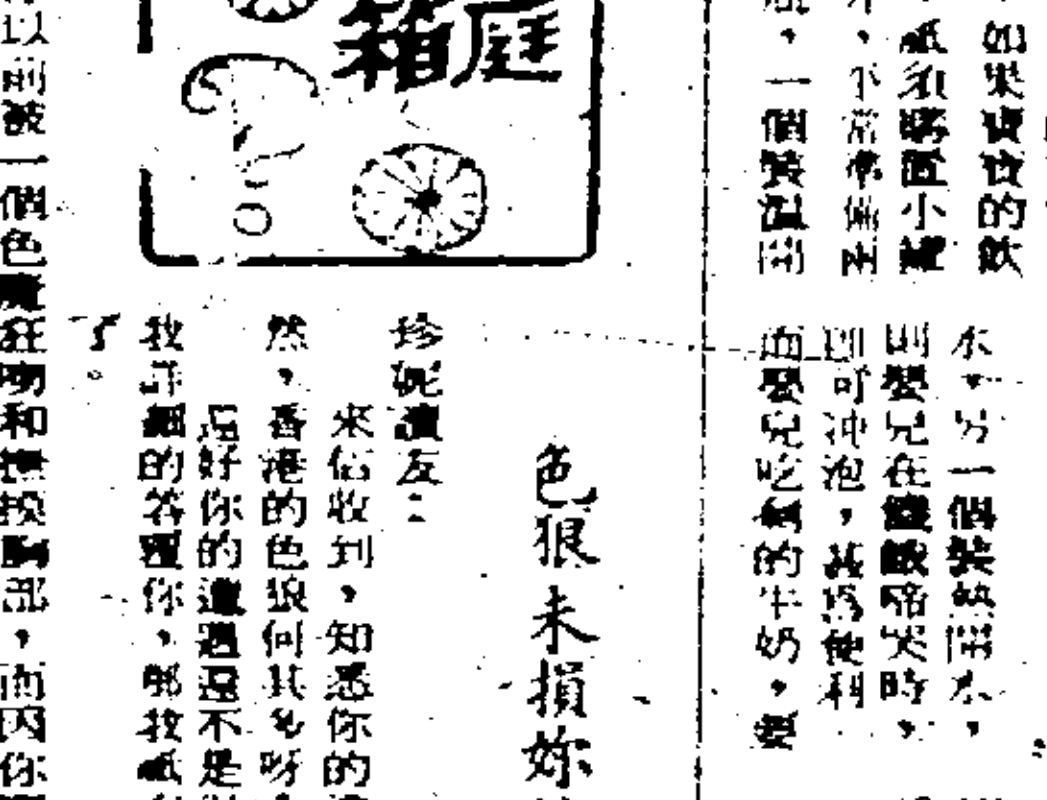 如果寶寶的飲
祇須購置小罐
一個裝溫開
水。另一個裝熱開水，
則嬰兒在饑餓啼哭時，
即可冲泡，甚為便利
而嬰兒吃剩的牛奶，要
庭
箱
色狼未損妳
珍妮讀友：
來信收到，知悉你的
然，香港的色狼何其多呀
還好你的遭遇還不是
我詳細的答覆你，那我祇
了。
以前被一個色魔狂吻和撫摸胸部，而因你